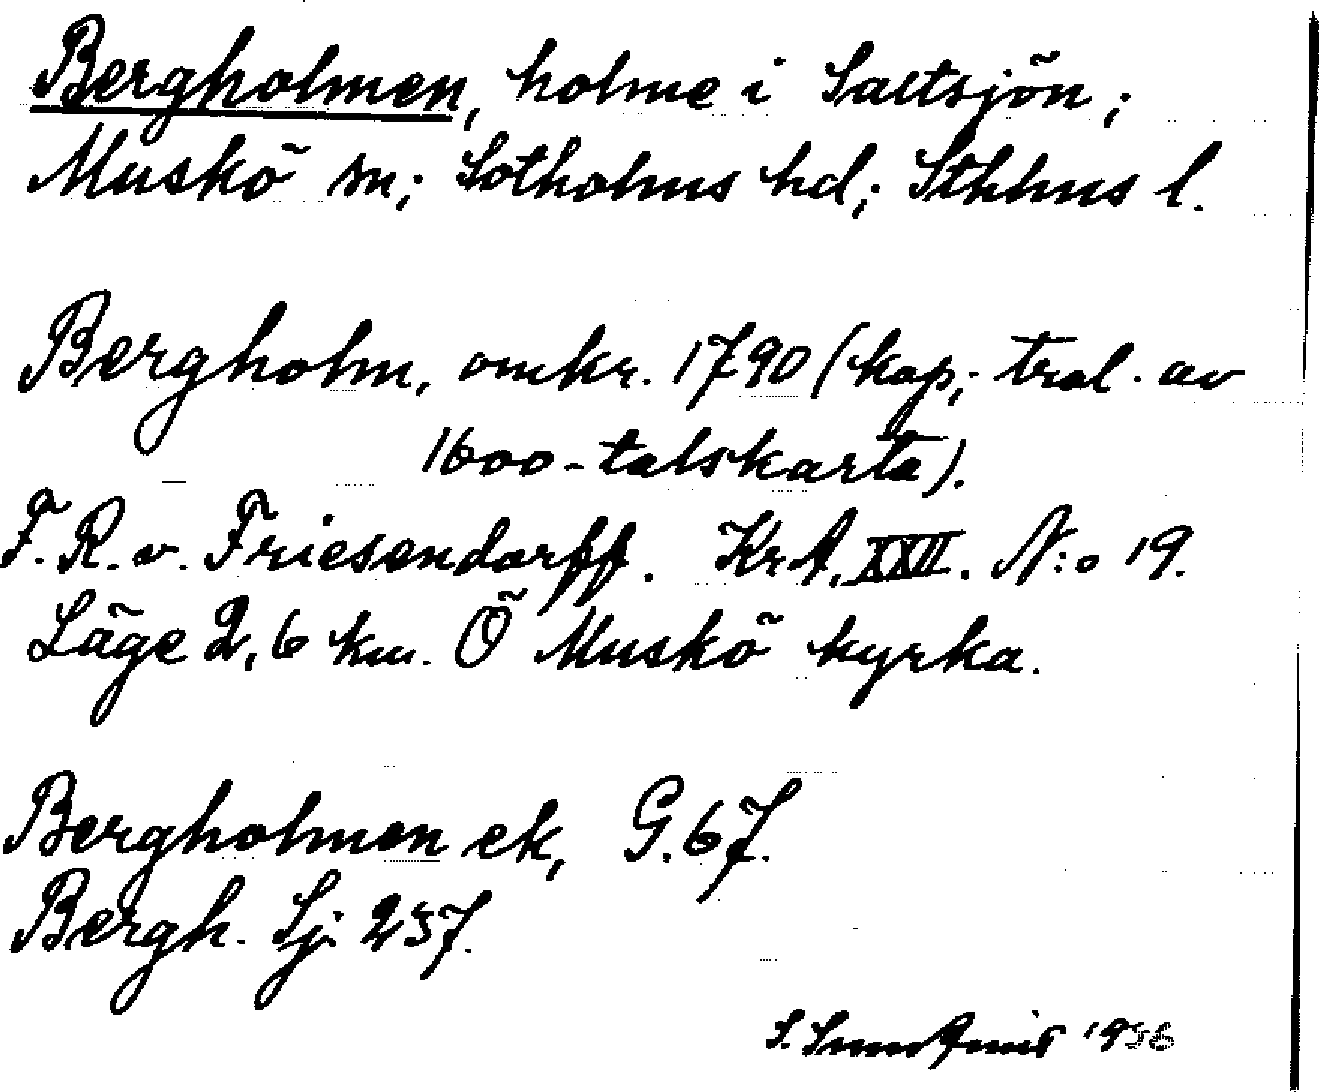 Bergholmen, holme i Saltsjön;
Muskö sn; Sotholms hd; Sthlms l.
Bergholm, omkr. 1790 (kop; trol. av
1600-talskarta).
F. R. v. Friesendorff. Kr. A. XXII. N:o 19.
Läge 2,6 km. Ö Muskö kyrka.
Bergholmen ek, G. 67.
Bergh. Sj. 257.
S. 1936